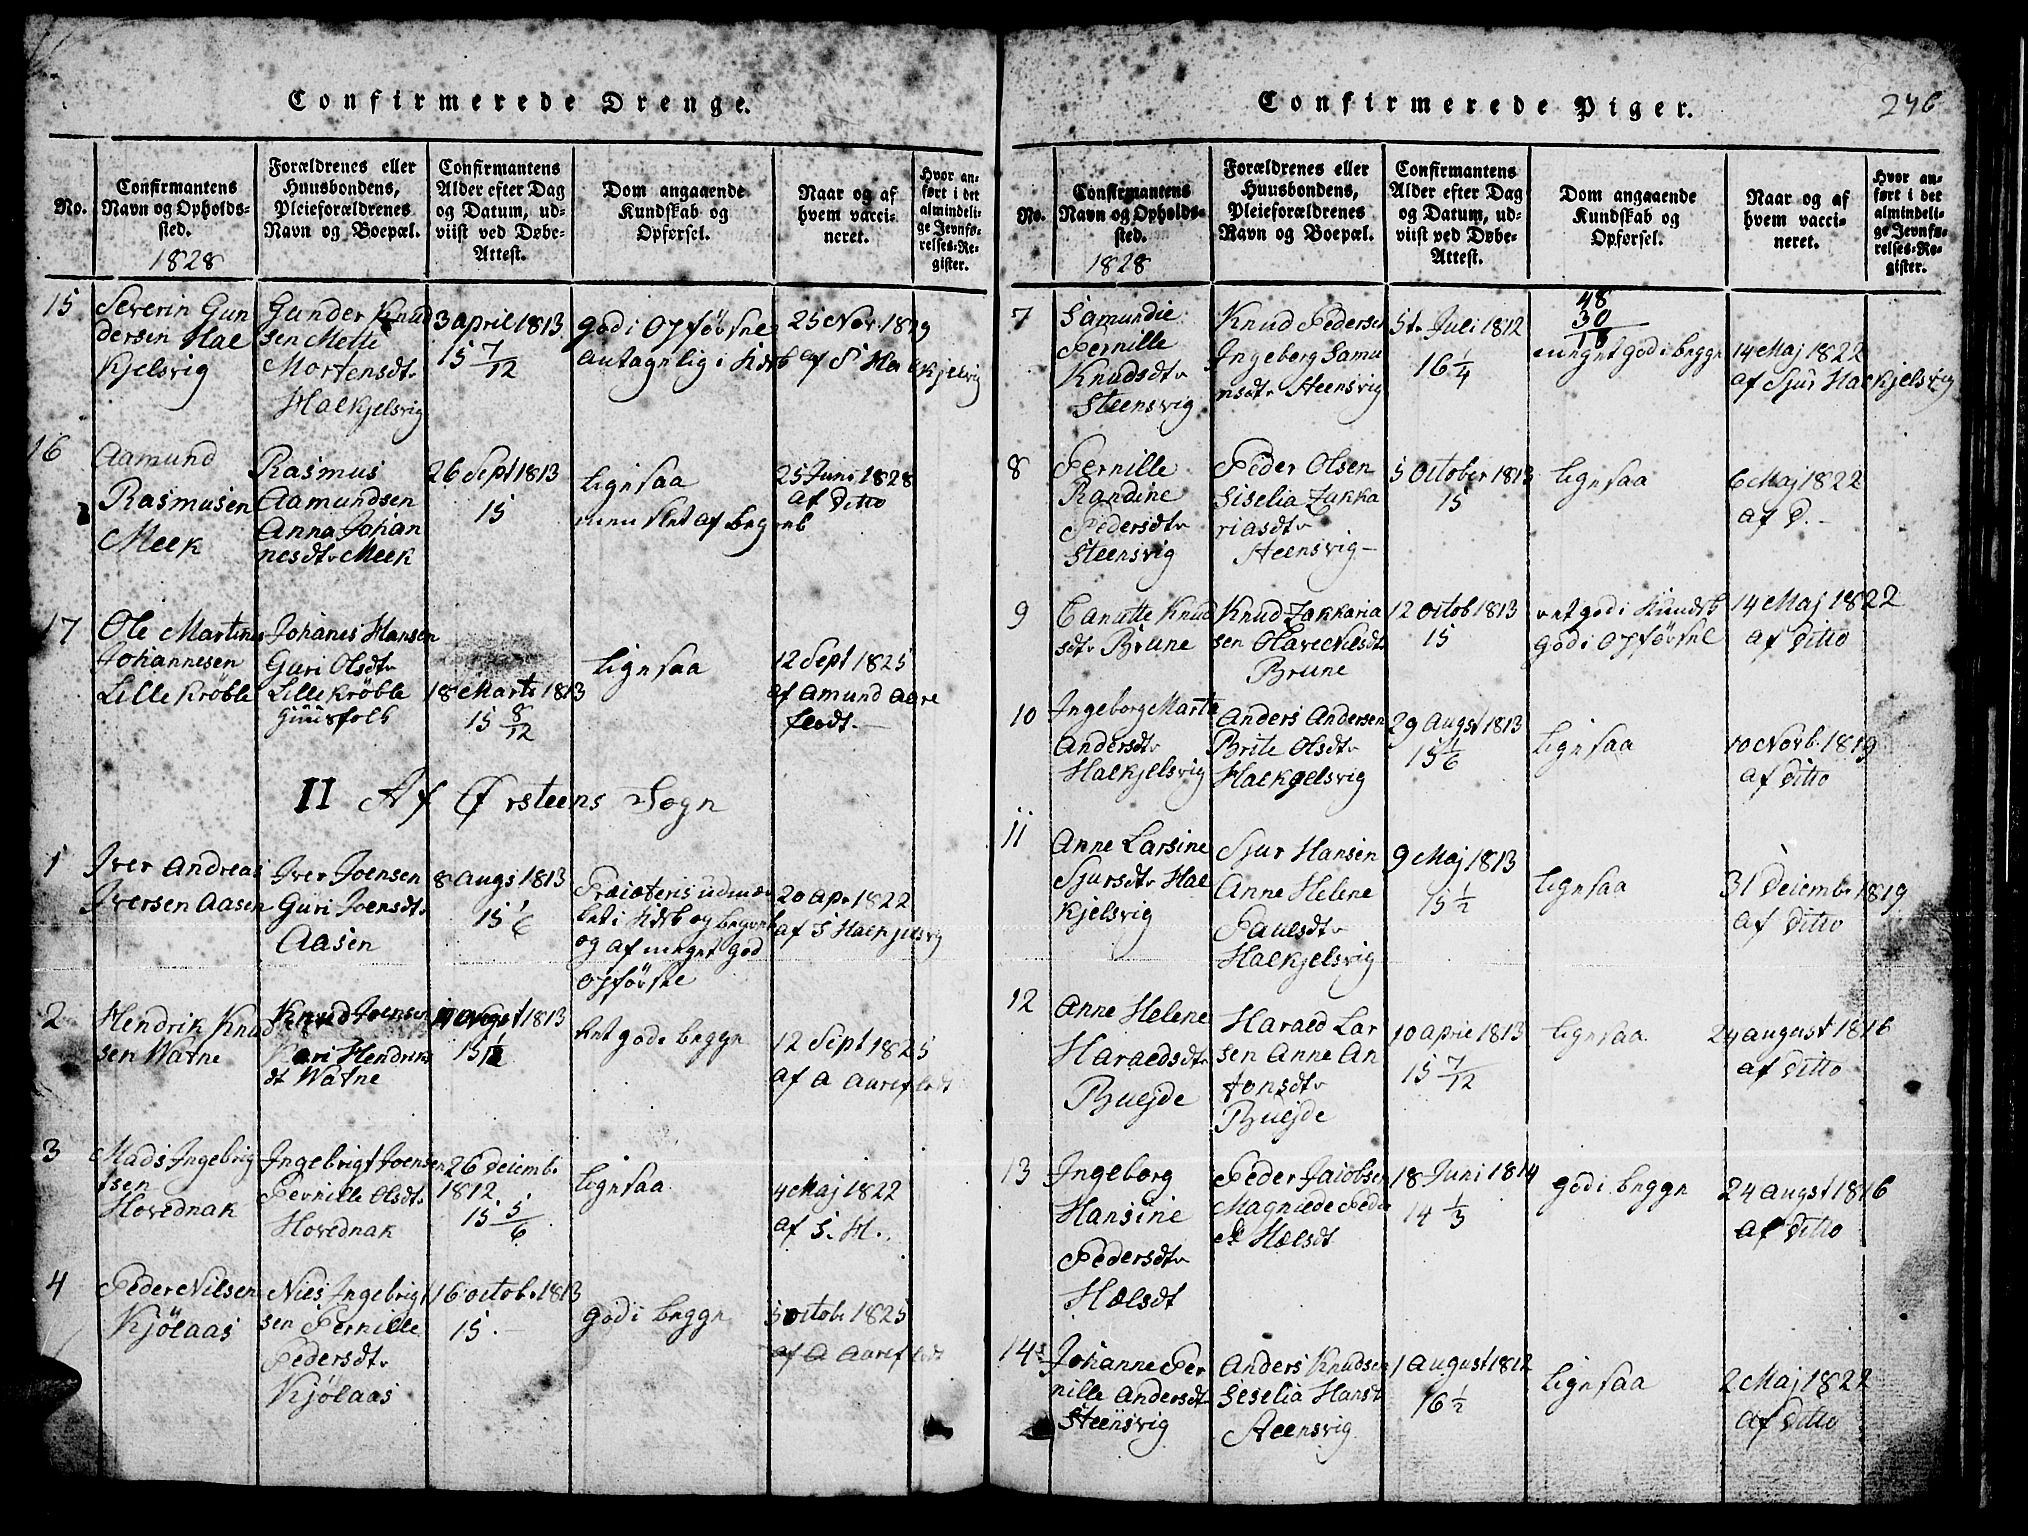 Confirmerede Drenge.
No.
Confirmantens
Navn og Opholds-
sted.
1828
Forældrenes eller
Huusbondens,
Pleieforældrenes
Navn og Boepæl.
Confirmantens
Alder efter Dag
og Datum, ud-
viist ved Døbe-
Attest.
Dom angaaende
Kundskab og
Opførsel.
Naar og af
hvem vacci-
neret.
Hvor an-
ført i det
almindeli-
ge Jevnfø-
relses-Re-
gister.
15
Severin Gun
dersen Hal
Kjelsvig
Gunder Knud
sen Mette
Mortensdtr
Halkjelsvig
3 april 1813
15 7/12
god i Opførsel
antagelig i Kdskb
25 Nov. 1819
af S Halkjelsvig
16
Aamund
Rasmusen
Meek
Rasmus
Aamundsen
Anna Johan
nesdtr Meek
26 Sept 1813
15
ligesaa
men slet af Beg
reb
25 Juni 1828
af Ditto
17
Ole Martinus
Johannesen
Lille Krøble
Johanes Hansen
Guri Olsdtr
Lille Krøble
Huusfolk
18 Marts 1813
15 8/12
ligesaa
12 Sept 1825
af Amund Aare
flodt.
II Af Ørsteens Sogn
1
Iver Andreas
Iversen Aasen
Iver Joensen
Guri Joensdtr
Aasen
8 Augs 1813
15 1/6
Præceteris udmær
ket i Kdskb og begreb
og af meget god
opførsel
20 Apr 1822
af S Halkjelsvig
2
Hendrik Knud
sen Watne
Knud Joensen
Kari Hendriks
dt Watne
1813
15
Ret god i begge
12 Sept 1825
af A Aareflodt
3
Mads Ingebrig
tsen
Hovednak
Ingebrigt Joensen
Pernille Olsdtr
Hovednak
26 Decembr
1812
15 5/6
ligesaa
4 Maj 1822
af S. H.
4
Peder Nilsen
Kjölaas
Niels Ingebrigt
sen Pernille
Pedersdtr
Kjölaas
16 octobr 1813
15.-
god i begge
5 octobr 1825
af A Aareflodt
Confirmerede Piger.
246
No.
Confirmantens
Navn og Opholds-
sted.
1828
Forældrenes eller
Huusbondens,
Pleieforældrenes
Navn og Boepæl.
Confirmantens
Alder efter Dag
og Datum, ud-
viist ved Døbe-
Attest.
Dom angaaende
Kundskab og
Opførsel.
Naar og af
hvem vacci-
neret.
Hvor an-
ført i det
almindeli-
ge Jevnfø-
relses-Re-
gister.
7
Samundie
Pernille
Knudsdtr
Steensvig
Knud Pedersen
Ingeborg Samu
nsdtr Steensvig
5te Juli 1812
16 1/4
48
30
18
meget god i begge
14 Maj 1822
af Sjur Halkjelsvig
8
Pernille
Randine
Pedersdtr
Steensvig
Peder Olsen
Siselia Zakka
riasdtr
Steensvig
5 October 1813
15
ligesaa
6 Maj 1822
af D.-
9
Canutte Knud
sdtr Brune
Knud Zakkaria
sen Olave Nilsdtr
Brune
12 octob 1813
15
ret god i Kundskb
god i Opførsel
14 Maj 1822
af Ditto
10
Ingeborg Marte
Andersdtr
Halkjelsvig
Anders Andersen
Brite Olsdtr
Halkjelsvig
29 Augst 1813
15 1/6
ligesaa
10 Novb. 1819
af Ditto
11
Anne Larsine
Sjursdtr Hal
kjelsvig
Sjur Hansen
Anne Helene
Paulsdtr
Halkjelsvig
9 Maj 1813
15 1/2
ligesaa
31 Decembr 1819
af Ditto
12
Anne Helene
Haraldsdtr
Buejde
Harald Lar
sen Anne An
tonsdtr
Buejde
10 april 1813
15 7/12
ligesaa
24 august 1816
af Ditto
13
Ingeborg
Hansine
Pedersdtr
Hælsdt
Peder Jacobsen
Magnilde Peder
Hælsdt
18 Juni 1814
14 1/3
god i begge
24 Augst 1816
af Ditto
14
Johanne Per
nille Andersdtr
Steensvig
Anders Knudsen
Seselia Hansdt
Steensvig
1 August 1812
16 1/2
ligesaa
2 Maj 1822
af Ditto